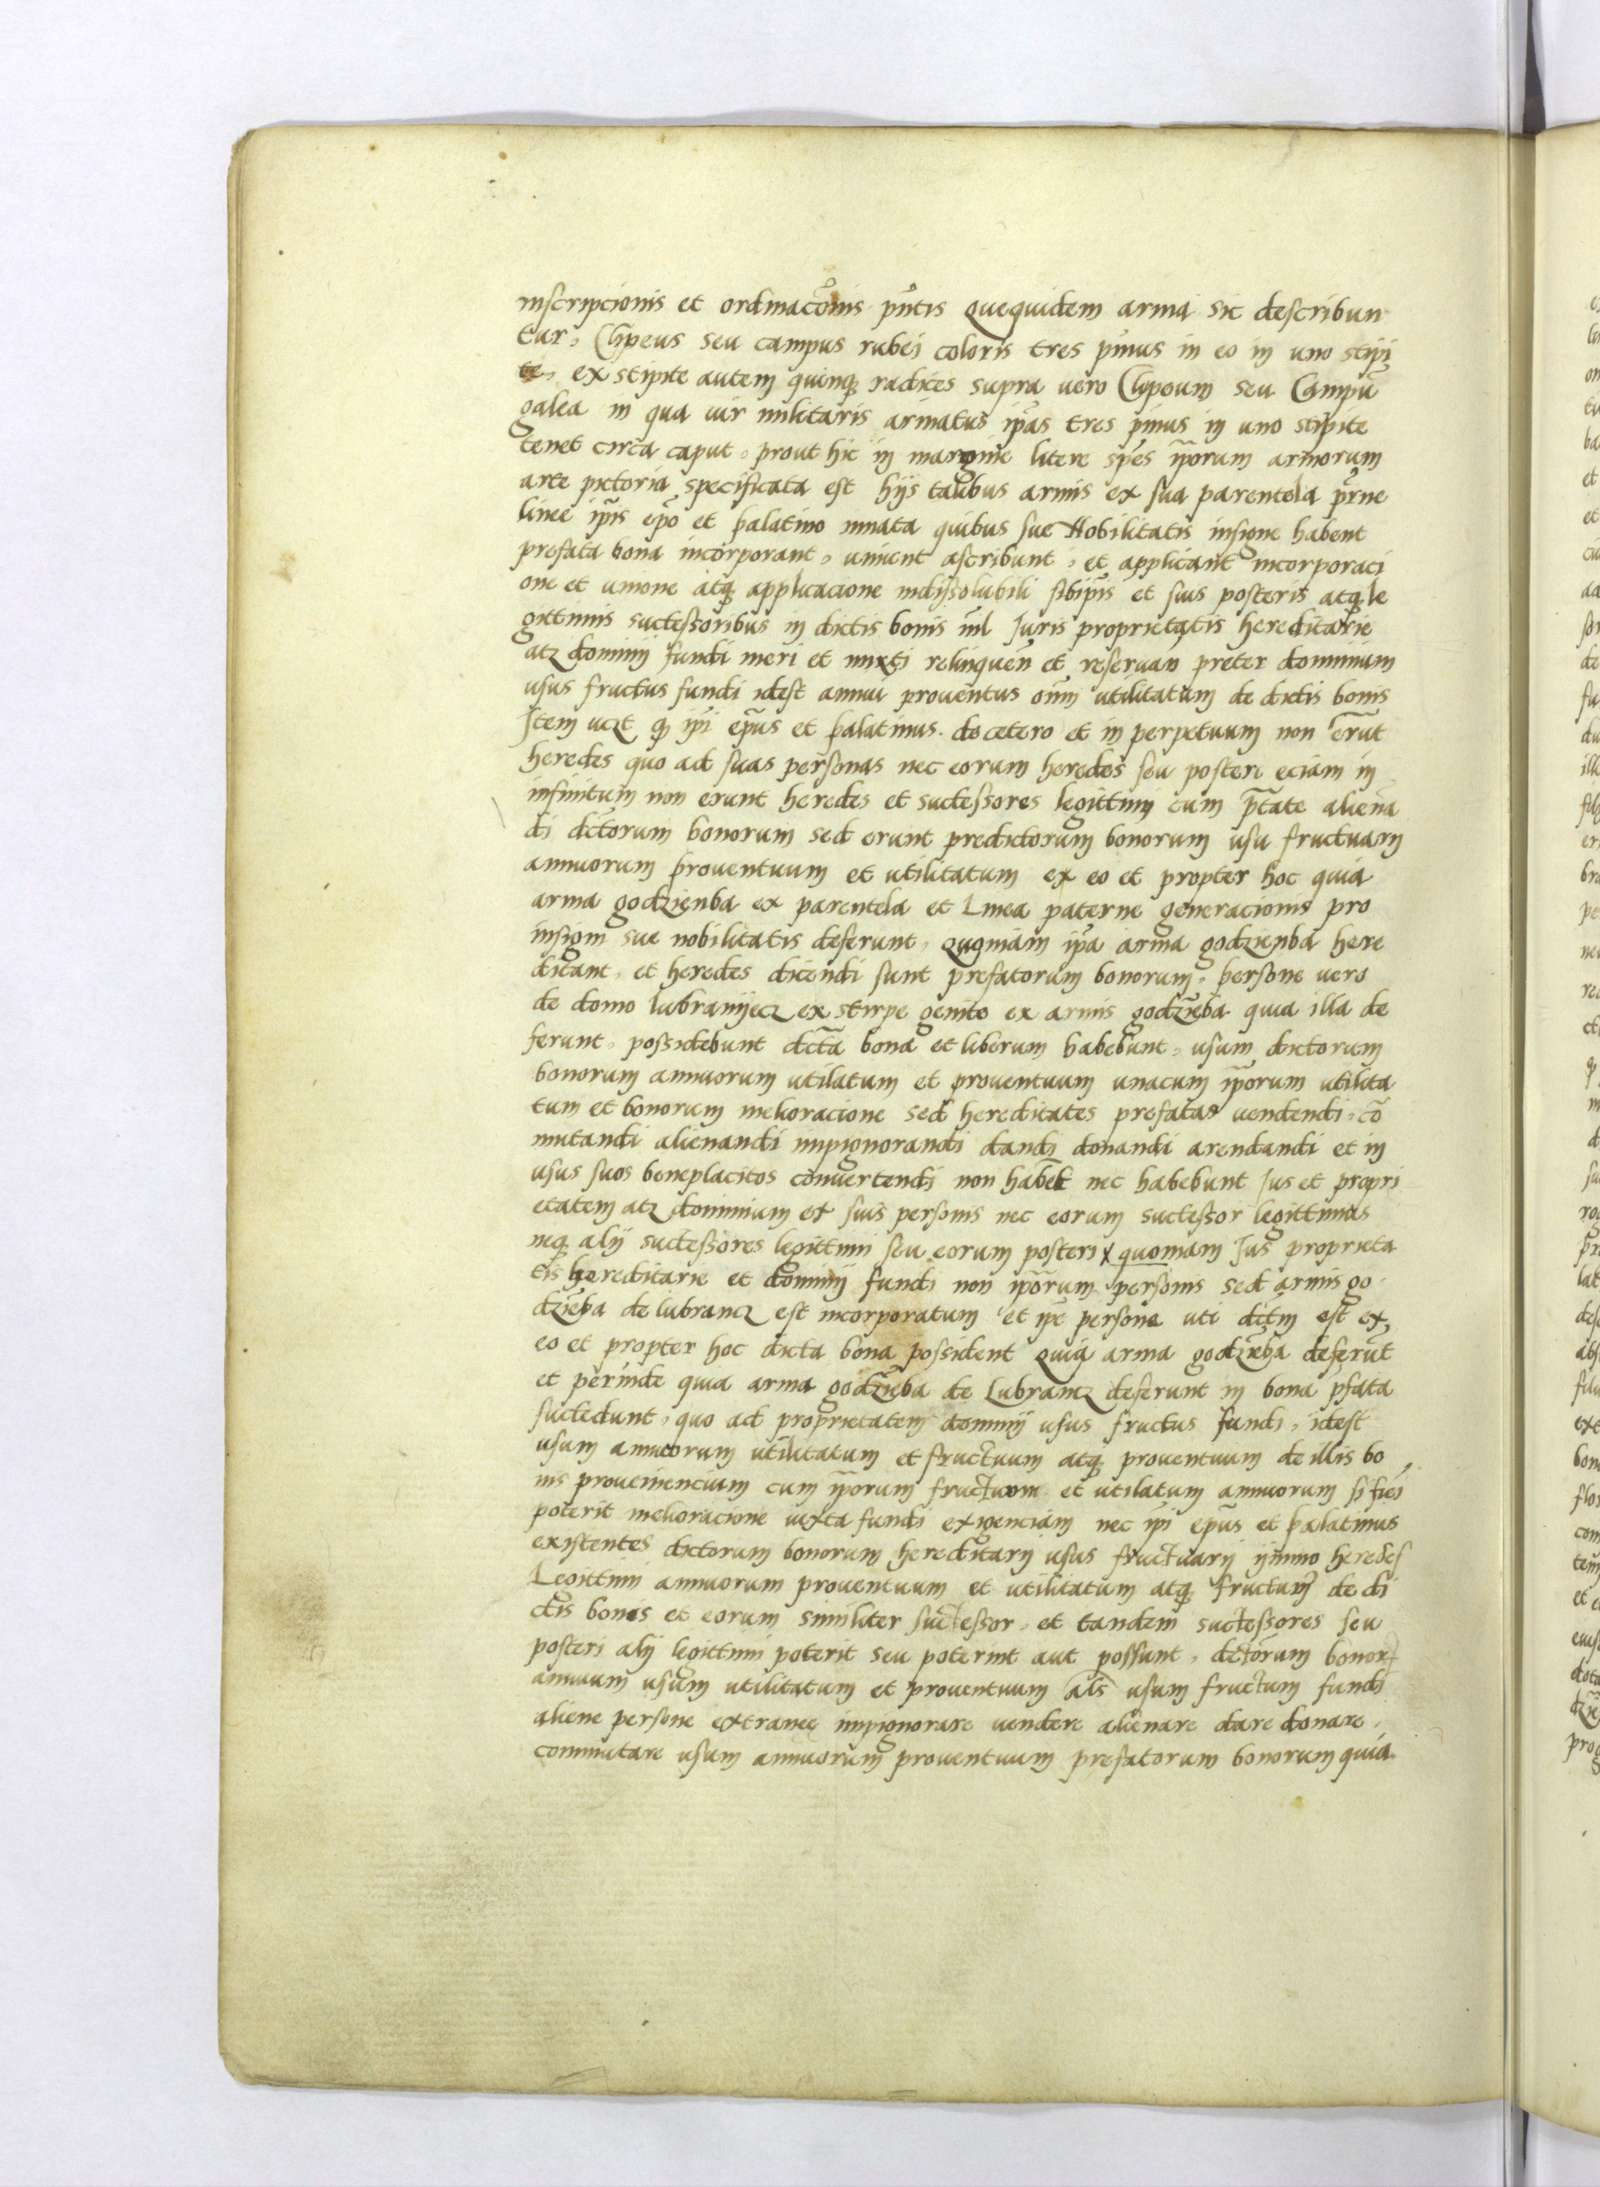 inscripcionis et ordinacōnis pñtis Quequidem arma sic describun
tur, Clipeus seu campus rubei coloris tres pinus in eo in uno stipi
te, ex stipite autem quinq radices supra vero Clipeum seu Campū
galea in qua vir militaris armatus ip̃as tres pinus in uno stipite
tenet circa caput, prout hic in margine litere sp̃es ip̃orum armorum
arte pictoria specificata est hijs talibus armis ex sua parentela p̃rne
linee ip̃is ep̃o et palatino innata quibus sue Nobilitatis insigne habent
prefata bona incorporant, uniunt ascribunt, et applicant incorporaci
one et unione atq applicacione indissolubili sibip̃is et suis posteris atq le
gittimis successoribus in dictis bonis nil Juris proprietatis hereditarie
atz dominij fundi meri et mixti relinqueñ et reseruañ preter dominium
usus fructus fundi idest annui proventus oīm utilitatum de dictis bonis
Item uczt q ip̃i ep̃us et palatinus. de cetero et in perpetuum non erūt
heredes quo ad suas personas nec eorum heredes seu posteri eciam in
infinitum non erunt heredes et successores legittimi cum p̃tate aliena
di dictorum bonorum sed erunt predictorum bonorum usu fructuarij
annuorum proventuum et utilitatum ex eo et propter hoc quia
arma godzienba ex parentela et Linea paterne generacionis pro
insigni sue nobilitatis deferunt, Qugniam ip̃a arma godzienba here
ditant, et heredes dicendi sunt prefatorum bonorum, persone vero
de domo lubranijecz ex stirpe genite ex armis godziẽba quia illa de
ferunt, possidebunt dctā bona et liberum habebunt, usum dictorum
bonorum annuorum utilatum et proventuum unacum ip̃orum utilita
tum et bonorum melioracione sed hereditates prefatas vendendi, cō
mutandi alienandi impignorandi dandi donandi arendandi et in
usus suos beneplacitos convertendi non habēt nec habebunt Jus et propri
etatem atz dominium ex suis personis nec eorum successor legittimus
neq alij successores legittimi seu eorum posteri x quoniam Jus proprieta
tis hereditarie et dominij fundi non ip̃orum personis sed armis go
dziēba de lubrancz est incorporatum et ip̃e persone uti dctm est ex
eo et propter hoc dicta bona possident Quia arma godziēba deferūt
et perinde quia arma godziēba de Lubrancz deferunt in bona p̃fata
succedunt, quo ad proprietatem dominij usus fructus fundi, idest
usum annuorum utilitatum et fructuum atq proventuum de illis bo
nis provenientium cum ip̃orum fructuum et utilatum annuorum si fiei
poterit melioracione iuxta fundi exigenciam nec ip̃i ep̃us et palatinus
existentes dictorum bonorum hereditarij usus fructuarij ijmmo heredes
Legittimi annuorum proventuum et utilitatum atq fructuum de di
ctis bonis et eorum similiter successor, et tandem successores seu
posteri alij legittimi poterit seu poterint aut possunt, dctorum bonor
annuum usum utilitatum et proventuum als usum fructum fundi
aliene persone extranee impignorare vendere alienare dare donare,
commutare usum annuorum proventuum prefatorum bonorum quia